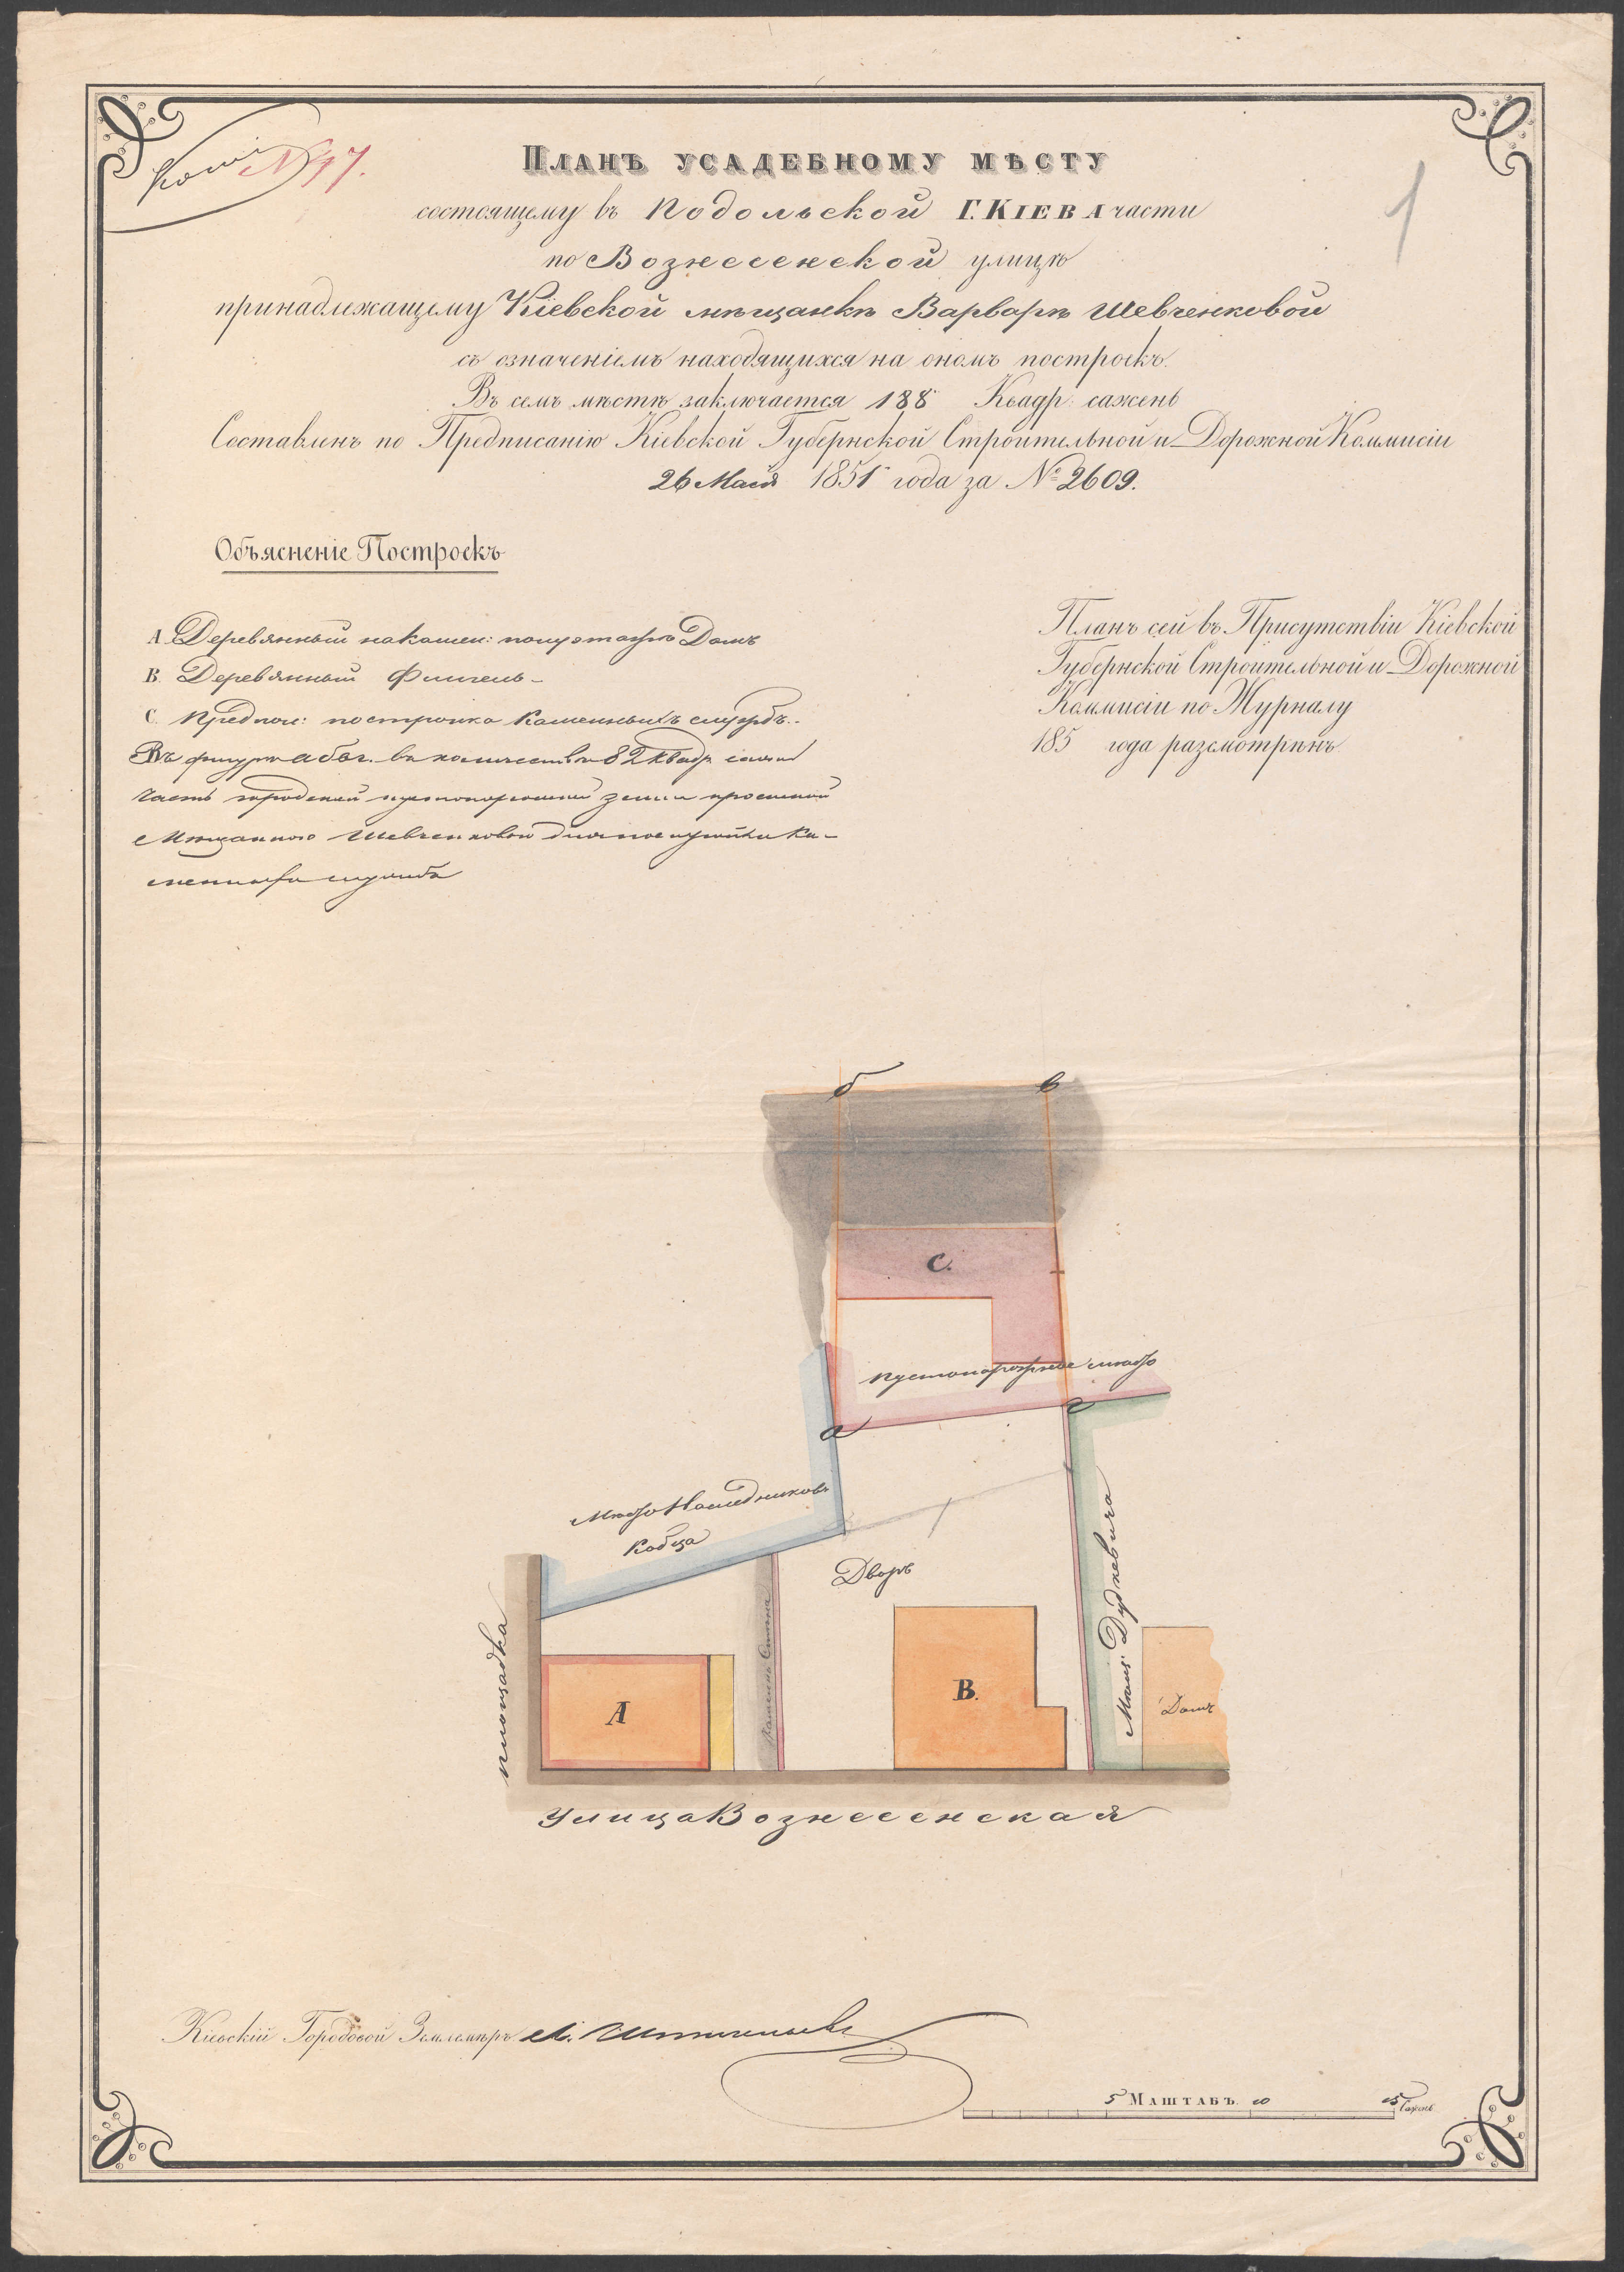 Копія № 47.
1
ПЛАНЪ УСАДЕБНОМУ МѢСТУ
состоящему въ Подольской Г. КІЕВА части
по Вознесенской улицѣ
принадлежащему Кіевской мѣщанкѣ Варварѣ Шевченковой
съ означеніемъ находящихся на ономъ построекъ.
Въ семъ мѣстѣ заключается 188 Квадр: сажень
Составленъ по Предписанію Кіевской Губернской Строительной и Дорожной Коммисіи
26 Маія 1851 года за № 2609.
Объясненіе Построекъ
А. Деревянный на камен: полуэтажѣ Домъ
В. Деревянный Флигель
С. Предпол: постройка Каменныхъ службъ.
Въ фигурѣ абвг. въ количествѣ 82 квадр. сажен
часть городской пустопорожней земли просимой
Мѣщанкою Шевченковою для постройки Ка-
менныхъ службъ
Планъ сей въ Присутствіи Кіевской
Губернской Строительной и Дорожной
Коммисіи по Журналу
185 года разсмотрѣнъ
б
в
С.
пустопорожнее мѣсто
а
г
Мѣсто Наследниковъ
Кобца
Дворъ
площадка
Камен: Стѣна
А
В.
Домъ
Улица Вознесенская
Кіевскій Городовой Землемѣръ
5 МАШТАБЪ. 10 15 Сажень